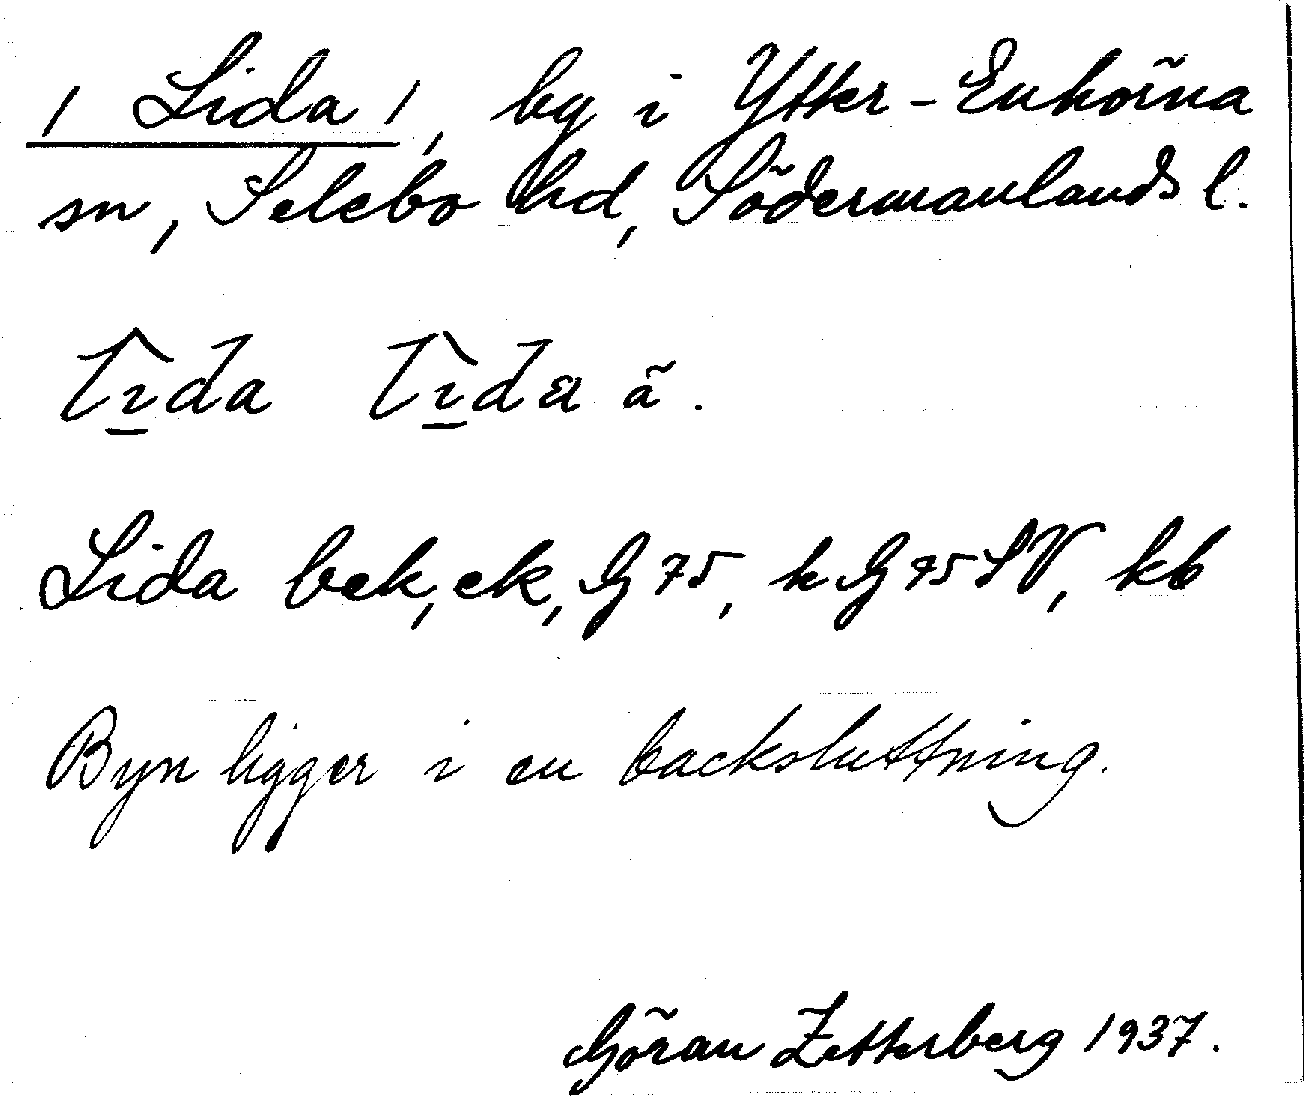 / Lida /, by i Ytter-Enhörna
sn, Selebo hd, Södermanlands l.
Lida bek, ek, G 75, k G 75 SV, kb
Byn ligger i en backsluttning.
Göran Zetterberg 1937.